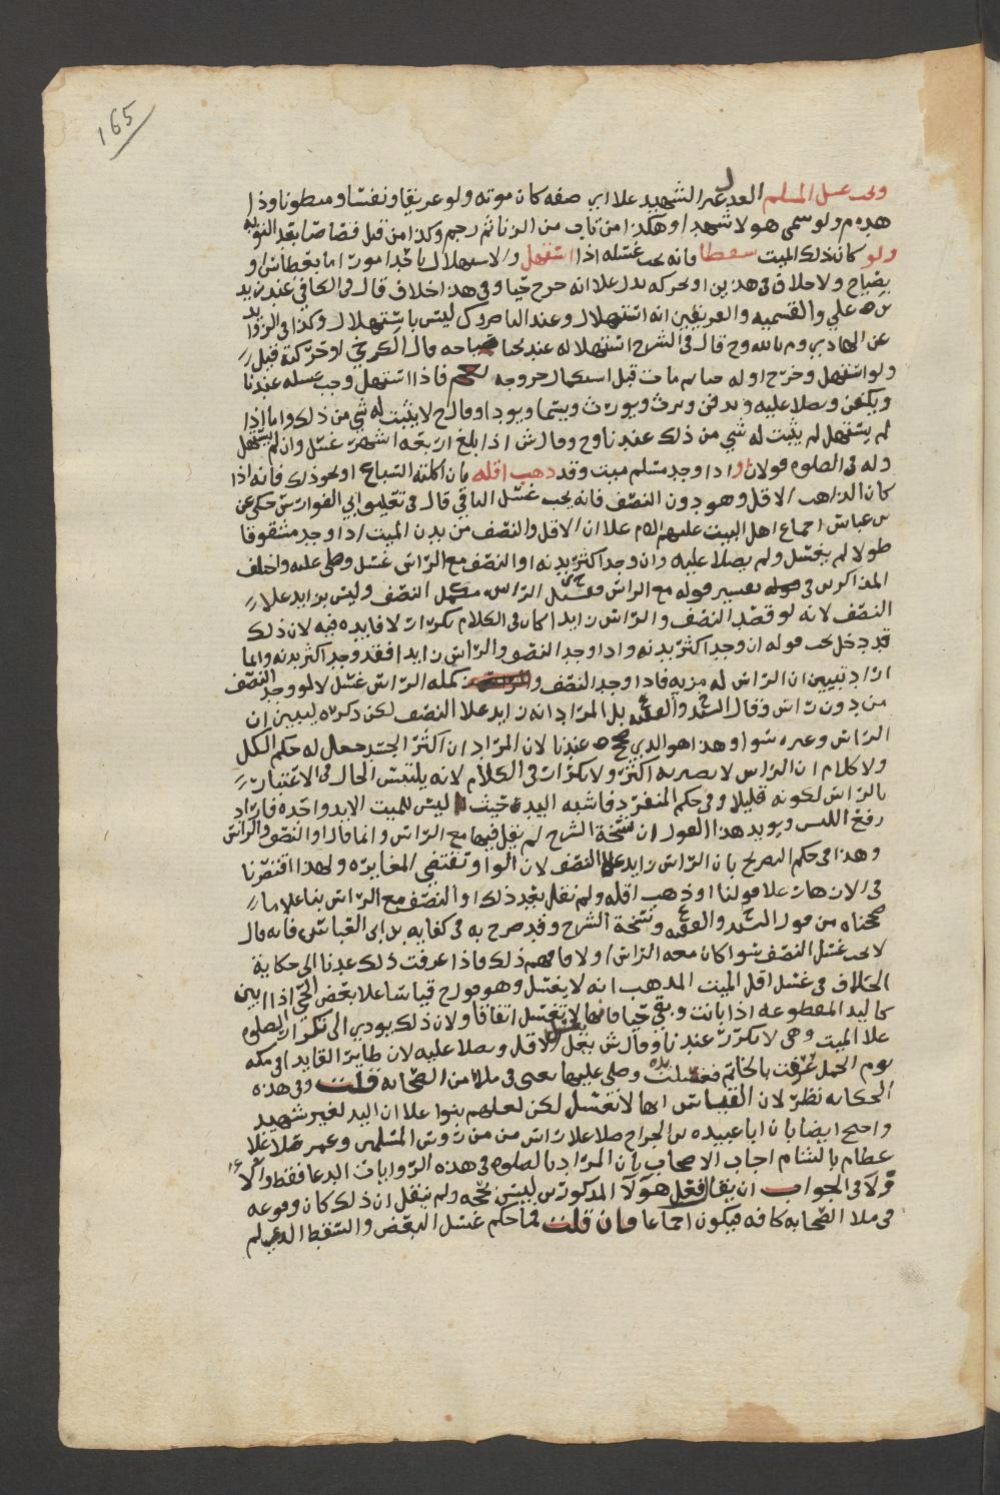 165
ويجب غسل المسلم العدل غير الشهيد علا اي صفه كان موته ولو غريقا ونفسا ومبطونا وذا
هدم ولو سمي هولا شهدا وهكذا من تاب من الزنا ثم رجم وكذا من قتل قصاصا بعد التوبه
ولو كان ذلك الميت سقطا فانه يجب غسله اذا استهل والاستهلال باحد امور اما بعطاس او
بصياح ولا خلاف في هذين او بحركه تدل علا انه خرج حيا وفي هذا خلاف قال في الكافي عند زيد
بن علي والقسميه والفريقين انه استهلال وعند الناصر وك ليس باستهلال وكذا في الزوايد
عن الهادي وم بالله وح قال في الشرح استهلاله عندنا صياحه وقال الكرخي او حركته قيل
ولو استهل وخرج اوله حيا ثم مات قبل استكمال خروجه فاذا استهل وجب غسله عندنا
ويكفن ويصلا عليه ويدفن ويرث ويورث ويسما ويودا وقال ح لا يثبت له شي من ذلك واما اذا
لم يستهل لم يثبت له شي من ذلك عندنا وح وقال ش اذا بلغ اربعه اشهر غسل وان لم يستهل
وله في الصلوه قولان او اذا وجد مسلم ميت وقد ذهب اقله بان اكلته السباع او نحو ذلك فانه اذا
كان الذاهب الاقل وهو دون النصف فانه يجب غسل الباقي قال في تعليق ابي الفوارس حكي عن
بن عباس اجماع اهل البيت عليهم السلام علا ان الاقل والنصف من بدن الميت اذا وجد مشقوقا
طولا لم يغسل ولم يصلا عليه وان وجد اكثر بدنه او النصف مع الراس غسل وصلي عليه واختلف
المذاكرين في تفسير قوله مع الراس فقيل الراس مكمل النصف وليس بزايد علا
النصف لانه لو قصد النصف والراس زايدا كان في الكلام تكرارا لا فايده فيه لان ذلك
قد دخل تحت قوله ان وجد اكثر بدنه واذا وجد النصف والراس زايدا فقد وجد اكثر بدنه وانما
اراد تبيين ان الراس له مزيه فاذا وجد النصف كمله الراس غسل لا لو وجد النصف
من دون راس وقال السيد ح والفقيه ع بل المراد انه زايد علا النصف لكن ذكره ليبين ان
الراس وغيره سوا وهذا هو الذي صح عندنا لان المراد ان اكثر الجسد جعل له حكم الكل
ولا كلام ان الراس لا يصيره اكثر ولا تكرار في الكلام لانه يلتبس الحال في الاعتبار
بالراس لكونه قليلا وفي حكم المنفرد فاشبه اليد حيث ليس للميت الا يد واحده فاراد
رفع اللبس ويويد هذا القول ان نسخة الشرح لم يقل فيها مع الراس وانما قال او النصف والراس
وهذا في حكم التصريح بان الراس زايد علا النصف لان الواو تقتضي المغايره ولهذا اقتصرنا
في الازهار علا قولنا او ذهب اقله ولم نقل بعد ذلك او النصف مع الراس بنا علا ما
صححناه من قول السيد ح والفقيه ع ونسخة الشرح وقد صرح به في كفايه بن ابي العباس فانه قال
لا يجب غسل النصف سوا كان معه الراس اولا فافهم ذلك فاذا عرفت ذلك عدنا الى حكاية
الخلاف في غسل اقل الميت المذهب انه لا يغسل وهو قول ح قياسا علا بعض الحي اذا ابين
كاليد المقطوعه اذا بانت وبقي حيا فانها لا تغسل اتفاقا ولان ذلك يودي الى تكرار الصلوه
علا الميت وهي لا تكرر عندنا وقال ش يغسل الاقل ويصلا عليه لان طايرا القا يدا في مكه
يوم الجمل عرفت بالخاتم فغسلت يده وصلي عليها يعني في ملا من الصحابه قلت وفي هذه
الحكايه نظر لان القياس انها لا تغسل لكن لعلهم بنوا علا ان اليد لغير شهيد
واحتج ايضا بان ابا عبيده بن الجراح صلا علا راس من روس المسلمين وعمر صلا علا
عظام بالشام اجاب الاصحاب بان المراد بالصلوه في هذه الروايات الدعا فقط والاولا
قولا في الجواب ان يقال فعل هولا المذكورين ليس بحجه ولم ينقل ان ذلك كان وقوعه
في ملا الصحابه كافه فيكون اجماعا فان قلت فما حكم غسل البعض والسقط الذي لم